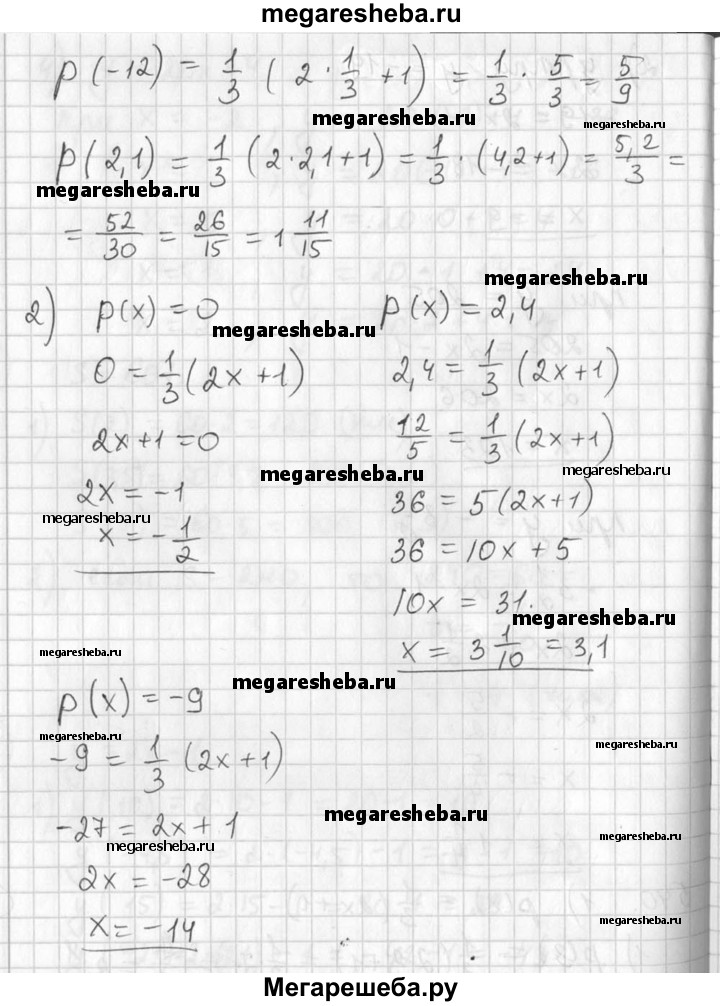 megaresheba.ru
p(-12) = 1/3 (2·1/3+1) = 1/3 · 5/3 = 5/9
megaresheba.ru
megaresheba.ru
p(2,1) = 1/3 (2·2,1+1) = 1/3 · (4,2+1) = 5,2/3 =
megaresheba.ru
= 52/30 = 26/15 = 1 11/15
megaresheba.ru
2) p(x) = 0
megaresheba.ru
0 = 1/3 (2x+1)
2x+1=0
megaresheba.ru
2x = -1
megaresheba.ru
x = -1/2
p(x) = 2,4
2,4 = 1/3 (2x+1)
12/5 = 1/3 (2x+1)
megaresheba.ru
36 = 5(2x+1)
36 = 10x + 5
10x = 31.
megaresheba.ru
x = 3 1/10 = 3,1
megaresheba.ru
megaresheba.ru
p(x) = -9
megaresheba.ru
megaresheba.ru
-9 = 1/3 (2x+1)
megaresheba.ru
-27 = 2x+1
megaresheba.ru
megaresheba.ru
2x = -28
x = -14
megaresheba.ru
Мегарешеба.ру